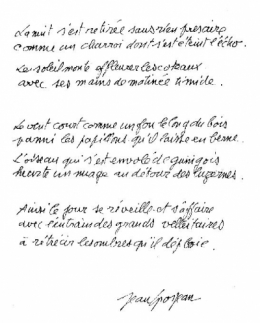 La nuit s'est retirée sans rien
comme un charroi dont s'est éteint l'écho.
Le soleil monte affleurer les coteaux
avec ses mains de matinée timide.
Le vent court comme un fou le long du bois
parmi les papillons qu'il laisse en berne.
L'oiseau qui s'est envolé de guingois
heurte un nuage au détour des luzernes.
Ainsi le jour se réveille et s'affaire
avec l'entrain des grands velléitaires
à rétrécir les ombres qu'il déploie.
Jean Grosjean